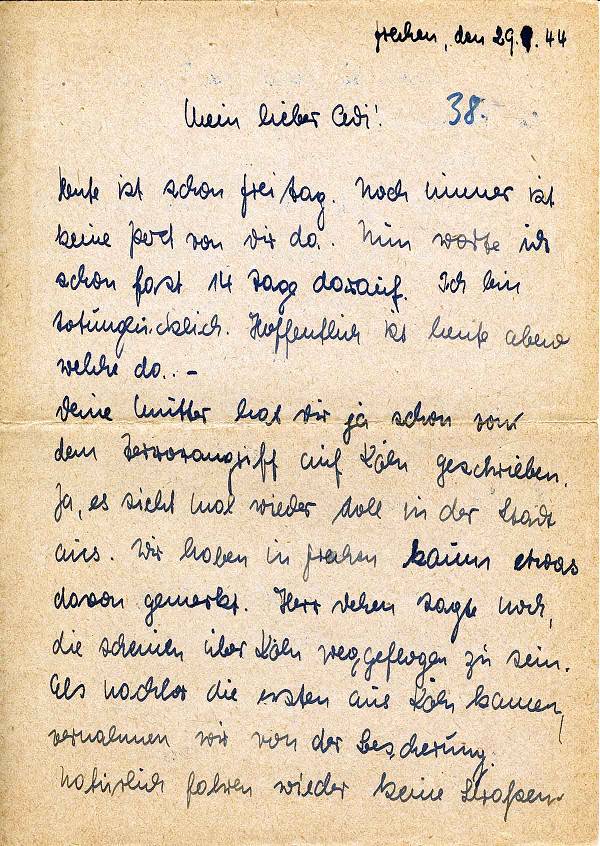 Frechen, den 29.9.44
Mein lieber Adi! 38.
Heute ist schon Freitag. Noch immer ist
keine Post von Dir da. Nun warte ich
schon fast 14 Tage darauf. Ich bin
totunglücklich. Hoffentlich ist heute abend
welche da. –
Deine Mutter hat Dir ja schon von
dem Terrorangriff auf Köln geschrieben.
Ja, es sieht mal wieder toll in der Stadt
aus. Wir haben in Frechen kaum etwas
davon gemerkt. Herr sagte noch,
die scheinen über Köln weggeflogen zu sein.
Als nachher die ersten aus Köln kamen,
vernahmen wir von der Bescherung.
Natürlich fahren wieder keine Straßen-